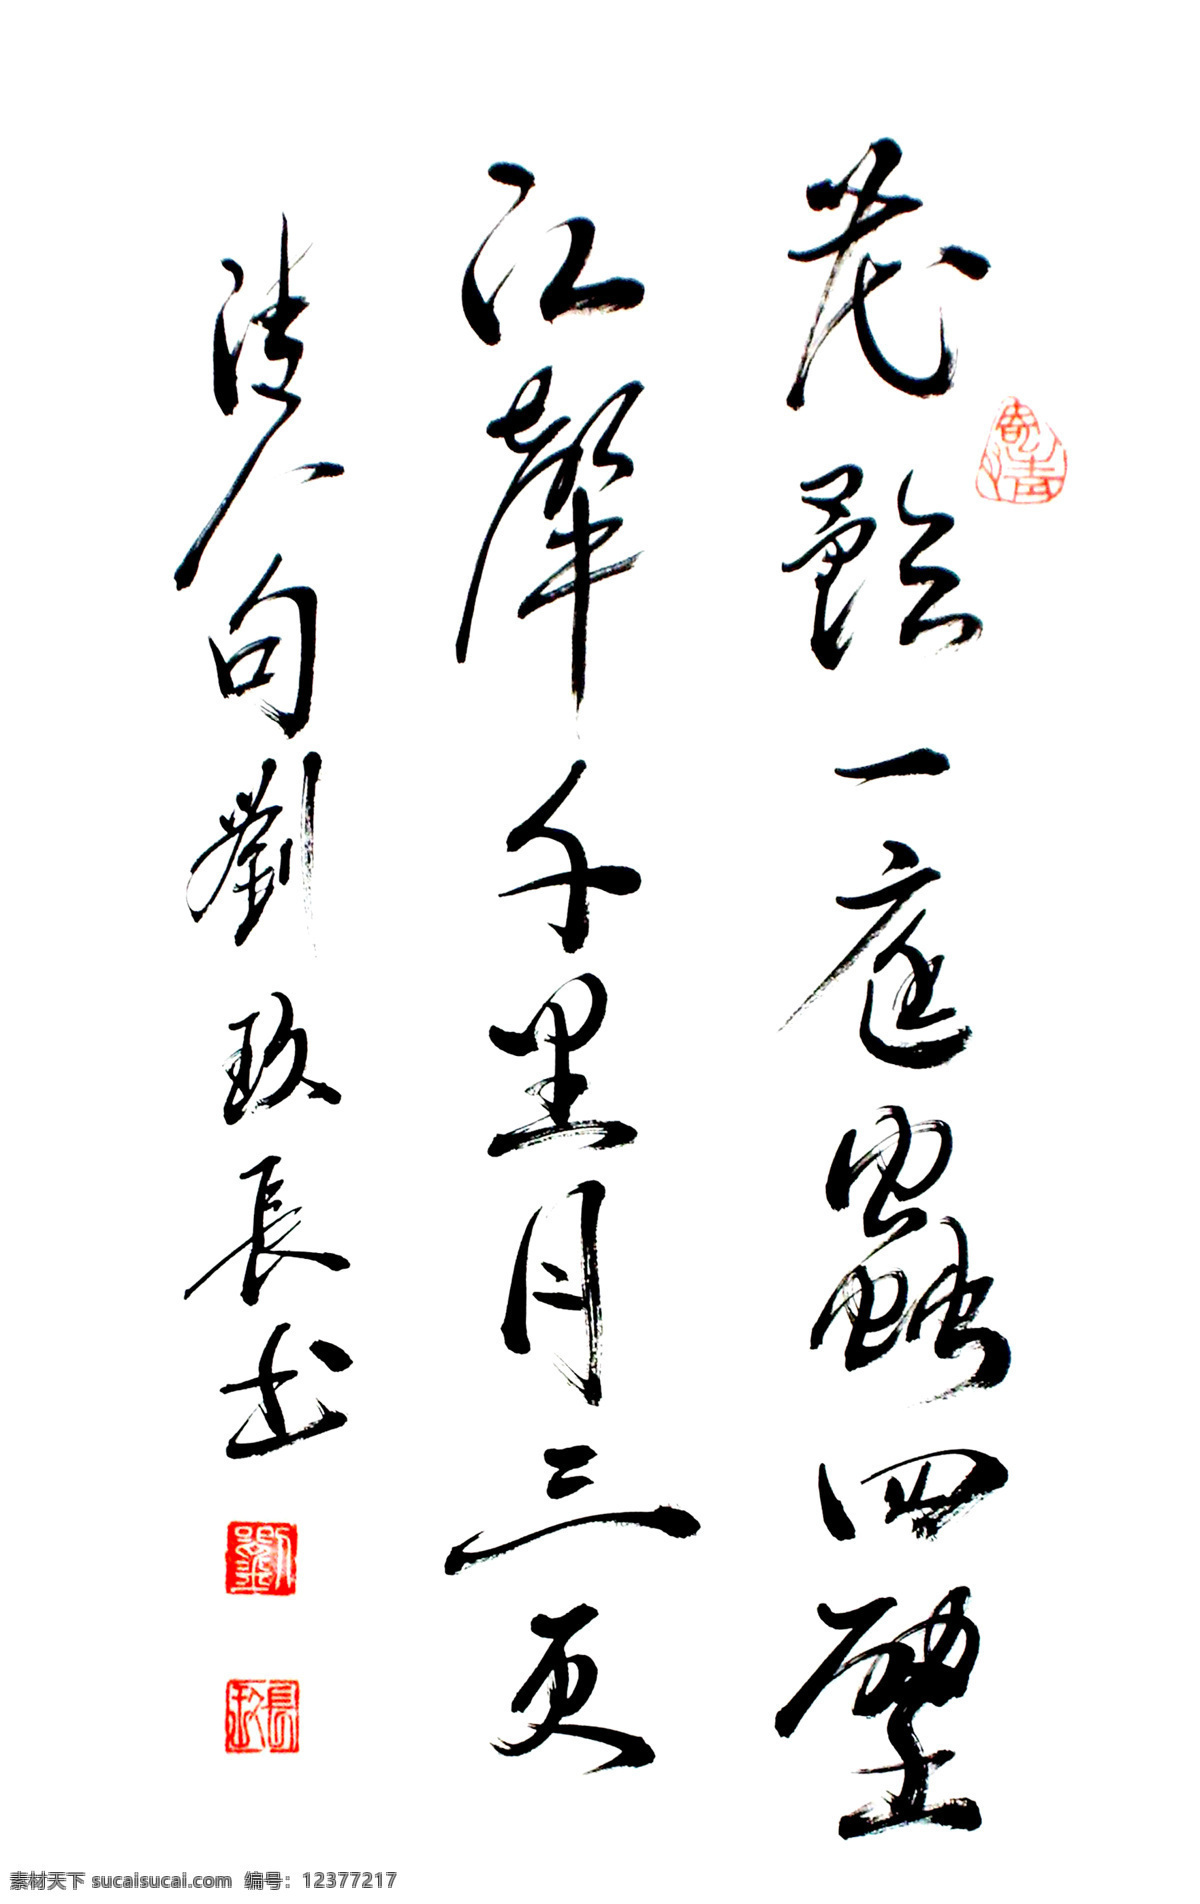 花一庭蟲四壁
江聲千里月三更
清人句劉玖長書
劉
素材天下 sucaisucai.com 编号：12377217